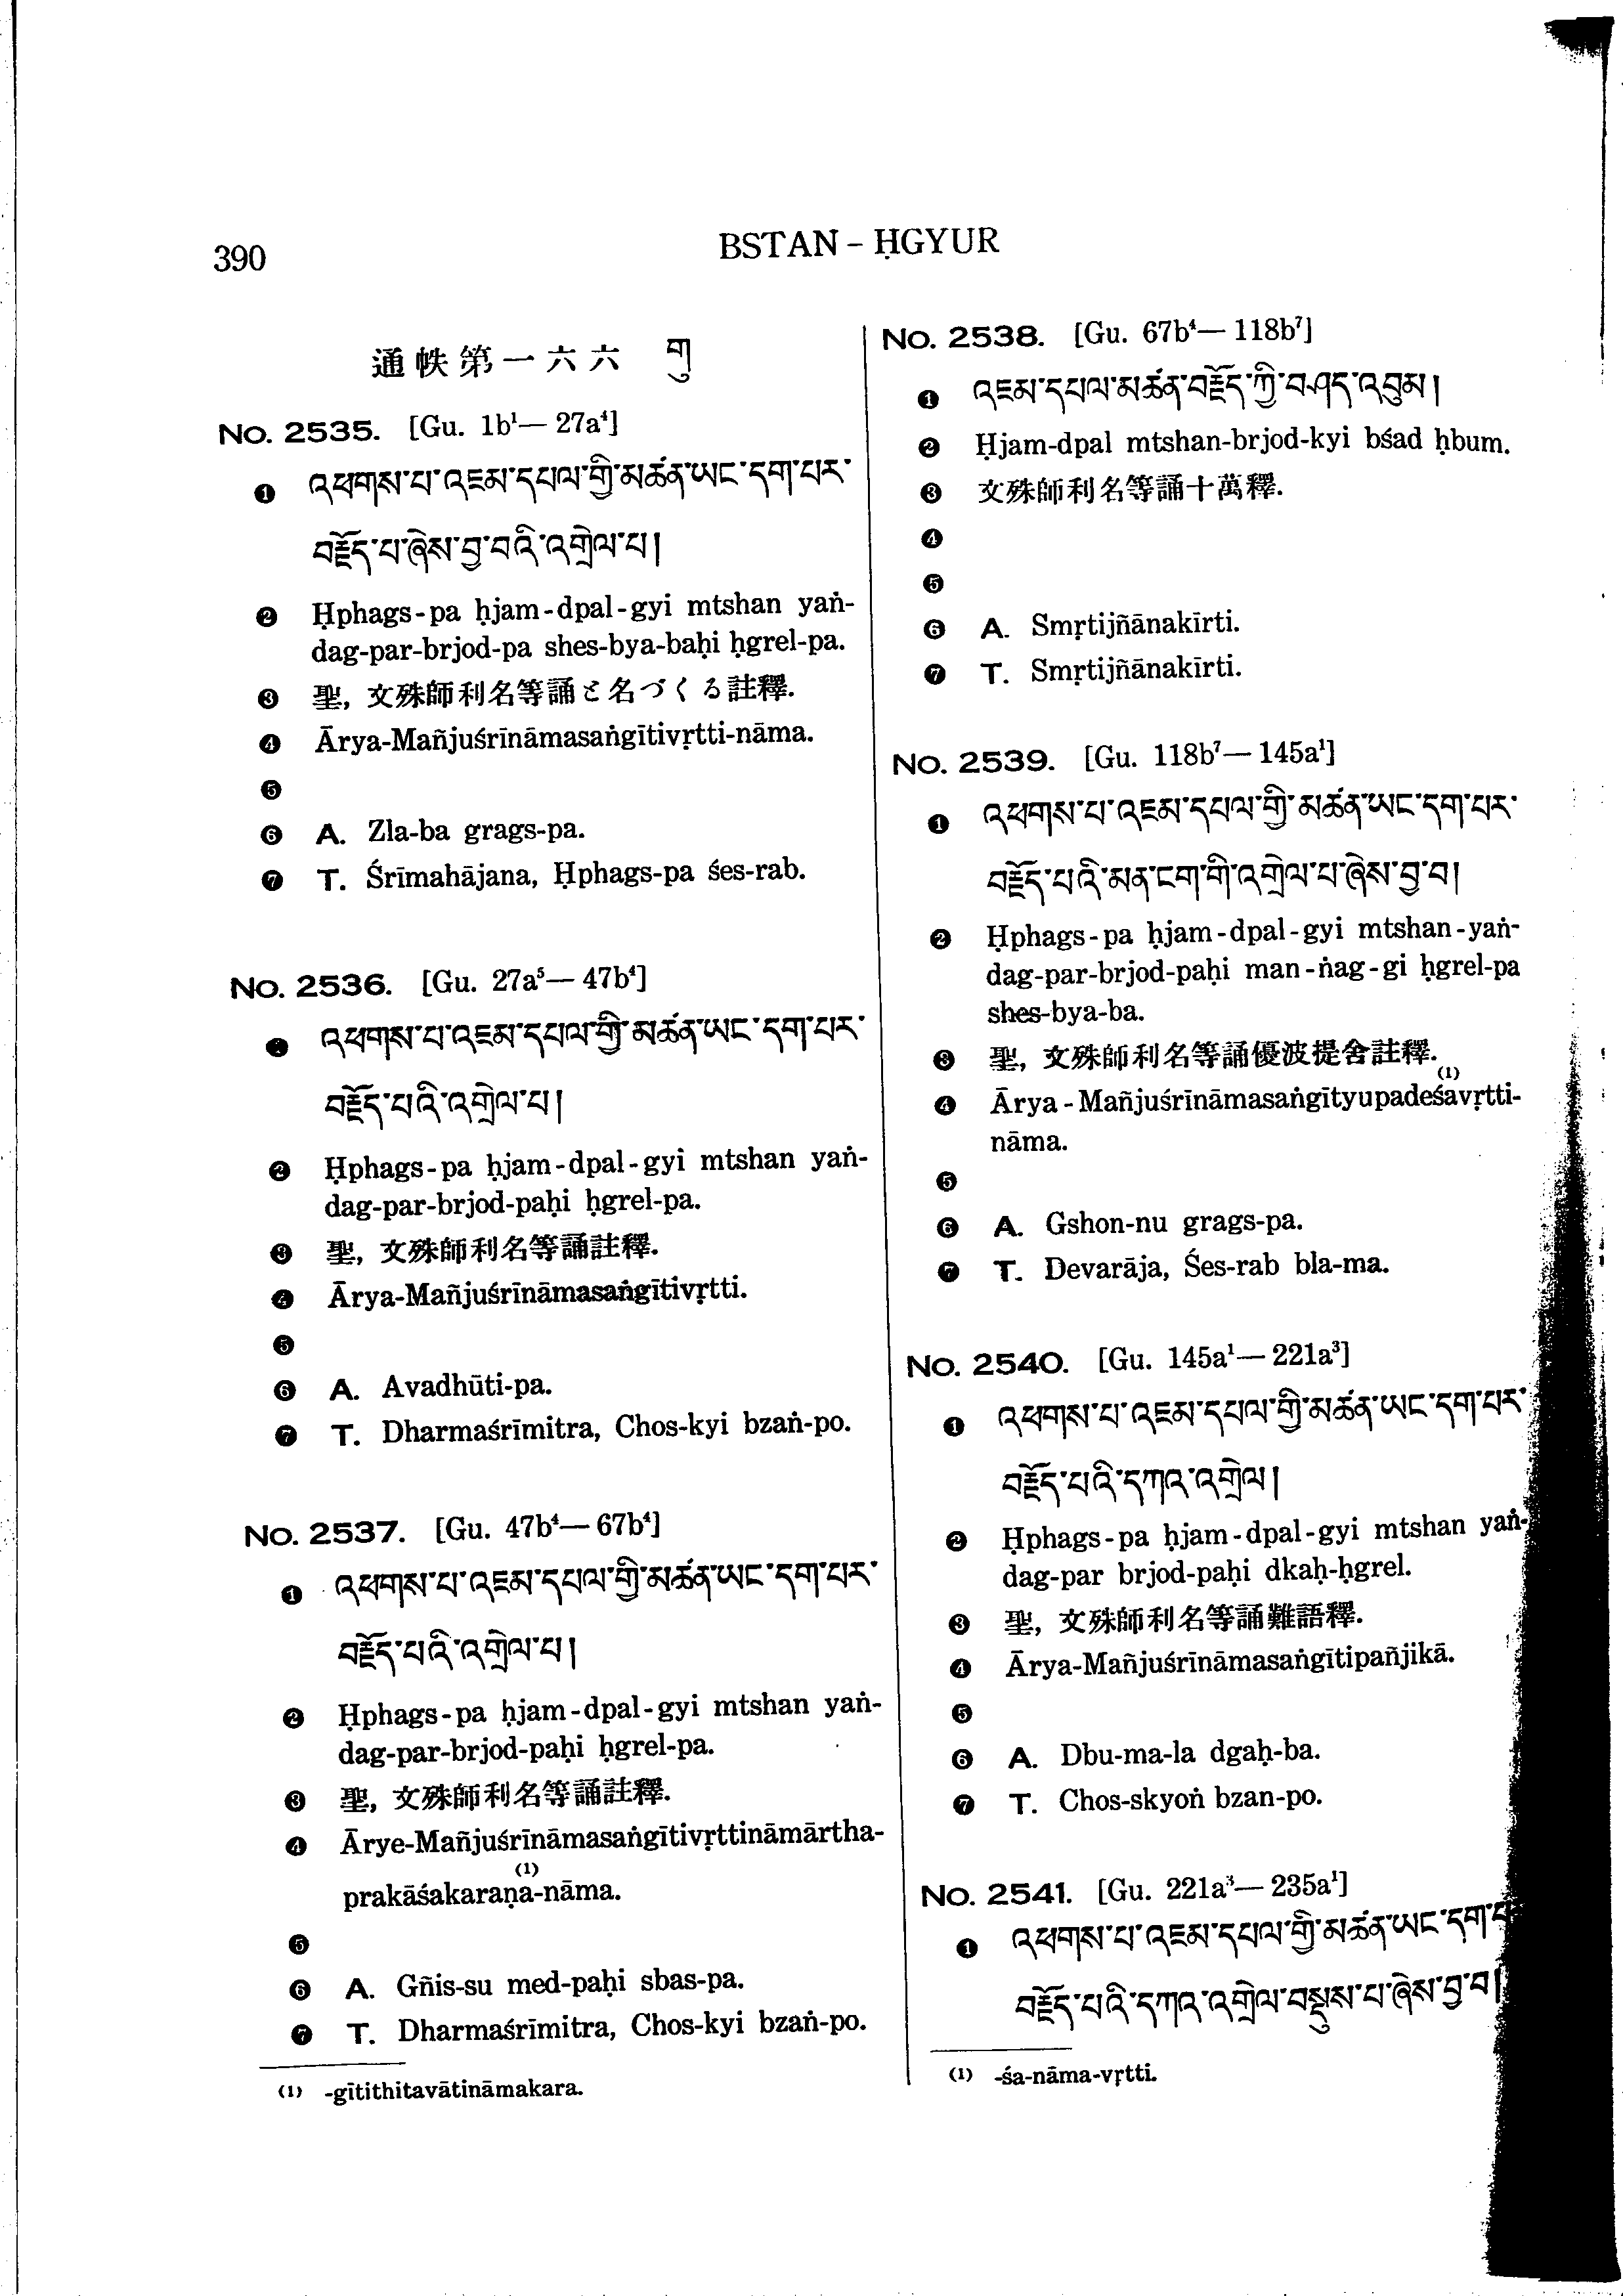 390
BSTAN – ḤGYUR
通帙第一六六 གུ
No. 2535. [Gu. 1b¹— 27a⁴]
❶ འཕགས་པ་འཇམ་དཔལ་གྱི་མཚན་ཡང་དག་པར་
བརྗོད་པ་ཞེས་བྱ་བའི་འགྲེལ་པ།
❷ Ḥphags-pa ḥjam-dpal-gyi mtshan yaṅ-
dag-par-brjod-pa shes-bya-baḥi ḥgrel-pa.
❸ 聖, 文殊師利名等誦と名づくる註釋.
❹ Ārya-Mañjuśrīnāmasaṅgītivṛtti-nāma.
❺
❻ A. Zla-ba grags-pa.
❼ T. Śrīmahājana, Ḥphags-pa śes-rab.
No. 2536. [Gu. 27a⁵— 47b⁴]
❶ འཕགས་པ་འཇམ་དཔལ་གྱི་མཚན་ཡང་དག་པར་
བརྗོད་པའི་འགྲེལ་པ།
❷ Ḥphags-pa ḥjam-dpal-gyi mtshan yaṅ-
dag-par-brjod-paḥi ḥgrel-pa.
❸ 聖, 文殊師利名等誦註釋.
❹ Ārya-Mañjuśrīnāmasaṅgītivṛtti.
❺
❻ A. Avadhūti-pa.
❼ T. Dharmaśrīmitra, Chos-kyi bzaṅ-po.
No. 2537. [Gu. 47b⁴— 67b⁴]
❶ འཕགས་པ་འཇམ་དཔལ་གྱི་མཚན་ཡང་དག་པར་
བརྗོད་པའི་འགྲེལ་པ།
❷ Ḥphags-pa ḥjam-dpal-gyi mtshan yaṅ-
dag-par-brjod-paḥi ḥgrel-pa.
❸ 聖, 文殊師利名等誦註釋.
❹ Ārye-Mañjuśrīnāmasaṅgītivṛttināmārtha-
prakāśakaraṇa-nāma.⁽¹⁾
❺
❻ A. Gñis-su med-paḥi sbas-pa.
❼ T. Dharmaśrīmitra, Chos-kyi bzaṅ-po.
(1) -gītithitavātināmakara.
No. 2538. [Gu. 67b⁴— 118b⁷]
❶ འཇམ་དཔལ་མཚན་བརྗོད་ཀྱི་བཤད་འབུམ།
❷ Ḥjam-dpal mtshan-brjod-kyi bśad ḥbum.
❸ 文殊師利名等誦十萬釋.
❹
❺
❻ A. Smṛtijñānakīrti.
❼ T. Smṛtijñānakīrti.
No. 2539. [Gu. 118b⁷— 145a¹]
❶ འཕགས་པ་འཇམ་དཔལ་གྱི་མཚན་ཡང་དག་པར་
བརྗོད་པའི་མན་ངག་གི་འགྲེལ་པ་ཞེས་བྱ་བ།
❷ Ḥphags-pa ḥjam-dpal-gyi mtshan-yaṅ-
dag-par-brjod-paḥi man-ṅag-gi ḥgrel-pa
shes-bya-ba.
❸ 聖, 文殊師利名等誦優波提舍註釋.
❹ Ārya-Mañjuśrīnāmasaṅgītyupadeśavṛtti-⁽¹⁾
nāma.
❺
❻ A. Gshon-nu grags-pa.
❼ T. Devarāja, Śes-rab bla-ma.
No. 2540. [Gu. 145a¹— 221a³]
❶ འཕགས་པ་འཇམ་དཔལ་གྱི་མཚན་ཡང་དག་པར་
བརྗོད་པའི་དཀའ་འགྲེལ།
❷ Ḥphags-pa ḥjam-dpal-gyi mtshan yaṅ-
dag-par brjod-paḥi dkaḥ-ḥgrel.
❸ 聖, 文殊師利名等誦難語釋.
❹ Ārya-Mañjuśrīnāmasaṅgītipañjikā.
❺
❻ A. Dbu-ma-la dgaḥ-ba.
❼ T. Chos-skyoṅ bzan-po.
No. 2541. [Gu. 221a³— 235a¹]
❶ འཕགས་པ་འཇམ་དཔལ་གྱི་མཚན་ཡང་དག
བརྗོད་པའི་དཀའ་འགྲེལ་བསྡུས་པ་ཞེས་བྱ་བ།
(1) -śa-nāma-vṛtti.